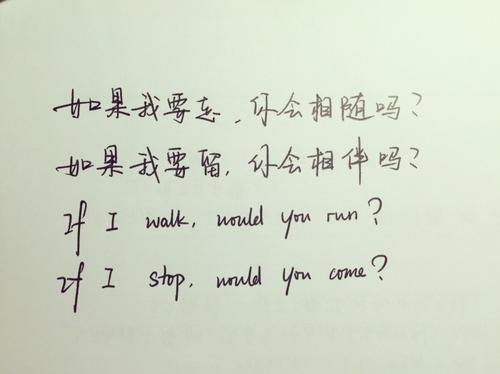 如果我要走，你会相随吗？
如果我要留，你会相伴吗？
If I walk, would you run?
If I stop, would you come?